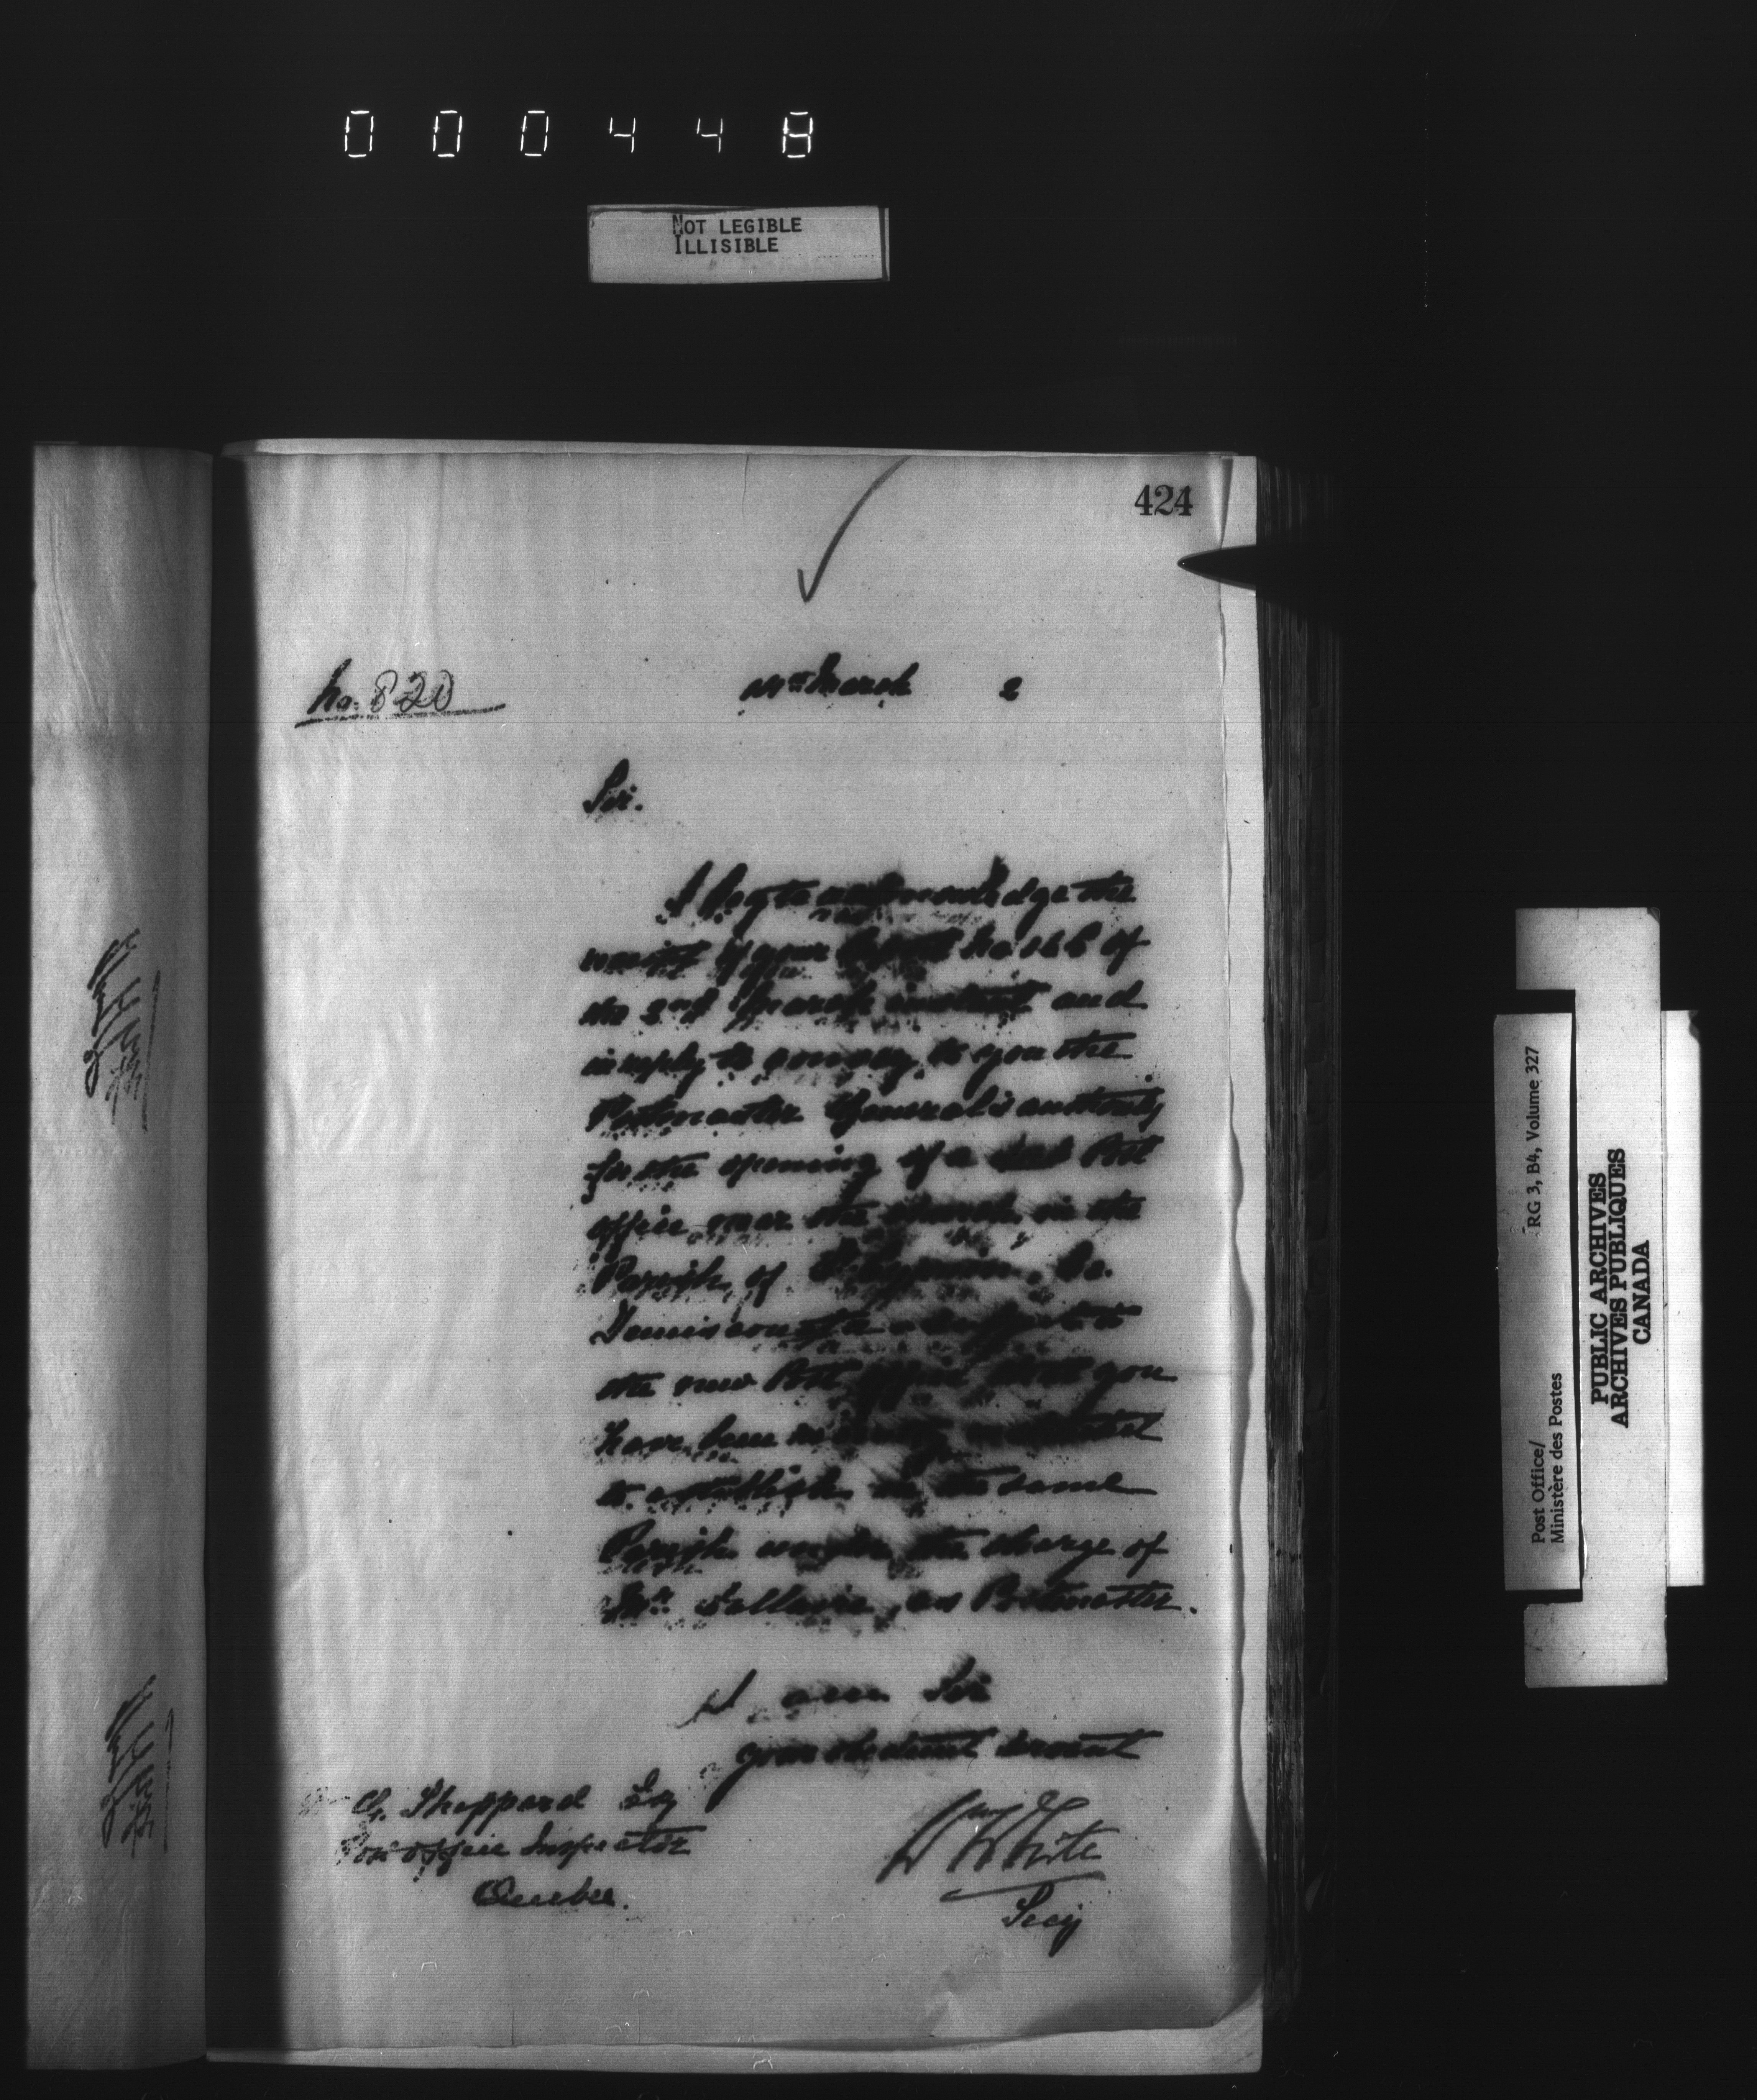 000448
NOT LEGIBLE
ILLISIBLE
424
No. 820
March 2
Sir.
I beg to acknowledge the
receipt of your Report No 166 of
the 2nd March instant and
in reply to convey to you the
Postmaster General's authority
for the opening of a Post
office near the church in the
Parish of Co.
Temiscouata
the new Post Office you
have been
to establish in the same
Parish under the charge of
Mr as Postmaster.
I am Sir
your obedient servant
W H White
Secy
G. Sheppard Esq
Post Office Inspector
Quebec.
RG 3, B4, Volume 327
Post Office/
Ministère des Postes
PUBLIC ARCHIVES
ARCHIVES PUBLIQUES
CANADA